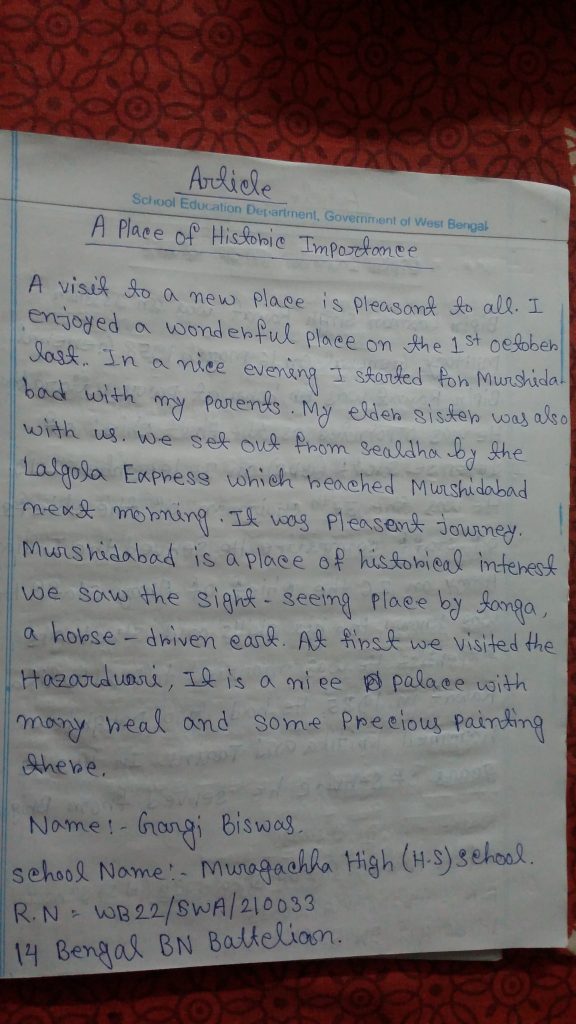 Article
School Education Department, Government of West Bengal
A Place of Historic Importance
A visit to a new place is pleasant to all. I
enjoyed a wonderful place on the 1st october
last. In a nice evening I started for Murshida-
bad with my parents. My elder sister was also
with us. We set out from sealdha by the
Lalgola Express which reached Murshidabad
next morning. It was pleasent journey.
Murshidabad is a place of historical interest
we saw the sight-seeing place by tanga,
a horse-driven cart. At first we visited the
Hazarduari, It is a nice palace with
many real and some precious painting
there.
Name:- Gargi Biswas.
School Name:- Muragachha High (H.S) School.
R.N = WB22/SWA/210033
14 Bengal BN Battelian.